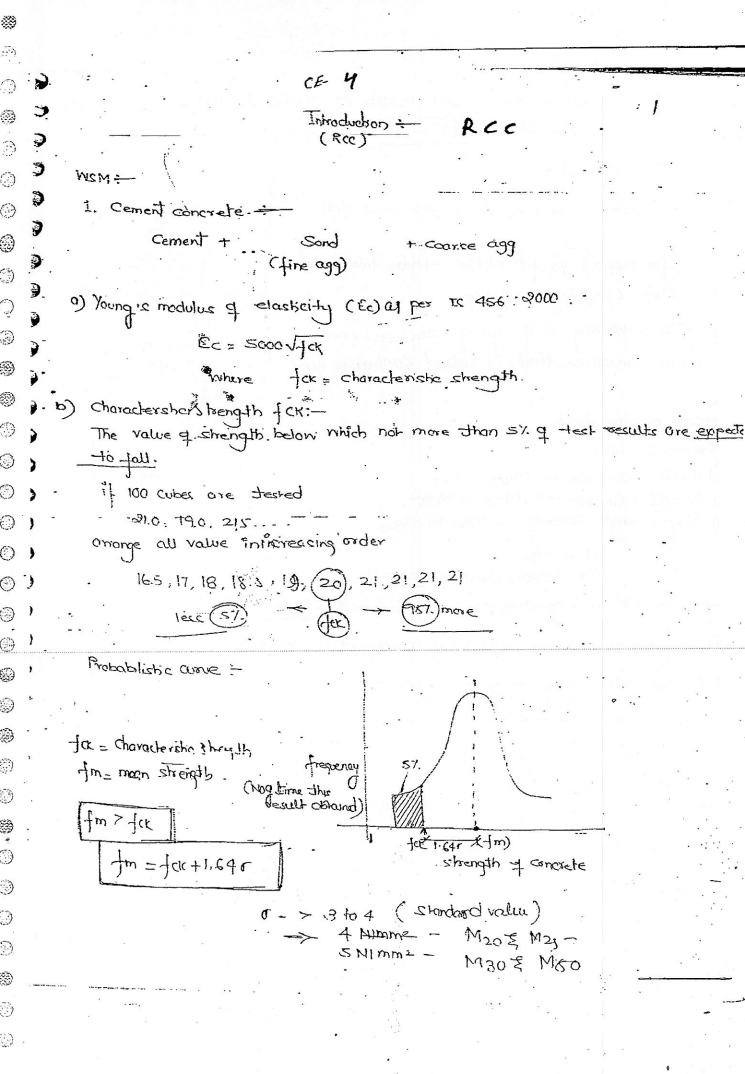 CE 4
1
Introduction :-
(RCC)
RCC
WSM :-
1. Cement concrete :-
Cement + Sand + coarse agg
(fine agg)
a) Young's modulus of elasticity (Ec) as per IS 456 : 2000 .
Ec = 5000√fck
Where fck = characteristic strength.
b) Characteristic strength fck :-
The value of strength below which not more than 5% of test results are expecte
to fall.
if 100 cubes are tested
21.0, 19.0, 21.5 ....
arrange all value in increasing order
16.5, 17, 18, 18.5, 19, 20, 21, 21, 21, 21
less 5% ← fck → 95% more
Probablistic curve :-
fck = characteristic strength
fm = mean strength.
fm > fck
fm = fck + 1.64σ
frequency
(No of time this
result obtained)
5%
fck 1.64σ (fm)
strength of concrete
σ -> 3 to 4 (standard value)
⇒ 4 N/mm² - M20 & M25 -
5 N/mm² - M30 & M50